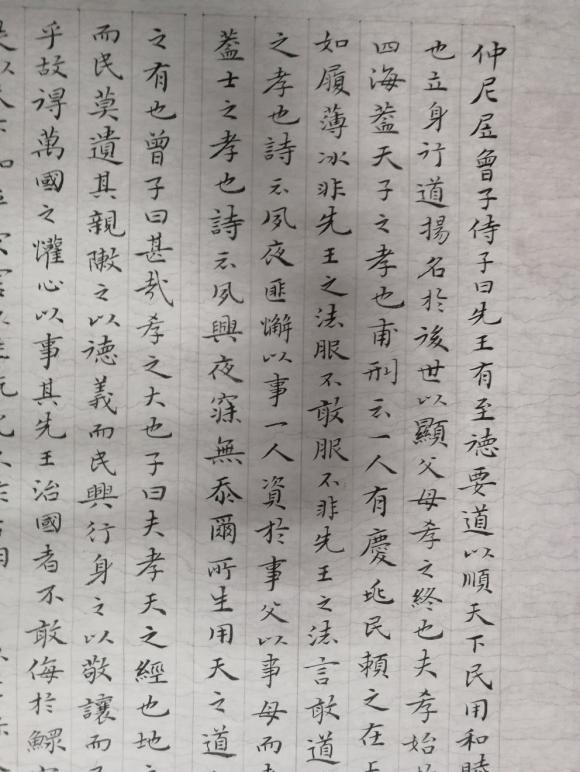 仲尼居曾子侍子曰先王有至德要道以順天下民用和睦
也立身行道揚名於後世以顯父母孝之終也夫孝始
四海蓋天子之孝也甫刑云一人有慶兆民賴之在上
如履薄冰非先王之法服不敢服不非先王之法言敢道
之孝也詩云夙夜匪懈以事一人資於事父以事母而
蓋士之孝也詩云夙興夜寐無忝爾所生用天之道
之有也曾子曰甚哉孝之大也子曰夫孝天之經也地之
而民莫遺其親敶之以德義而民興行身之以敬讓而
乎故得萬國之懽心以事其先王治國者不敢侮於鰥